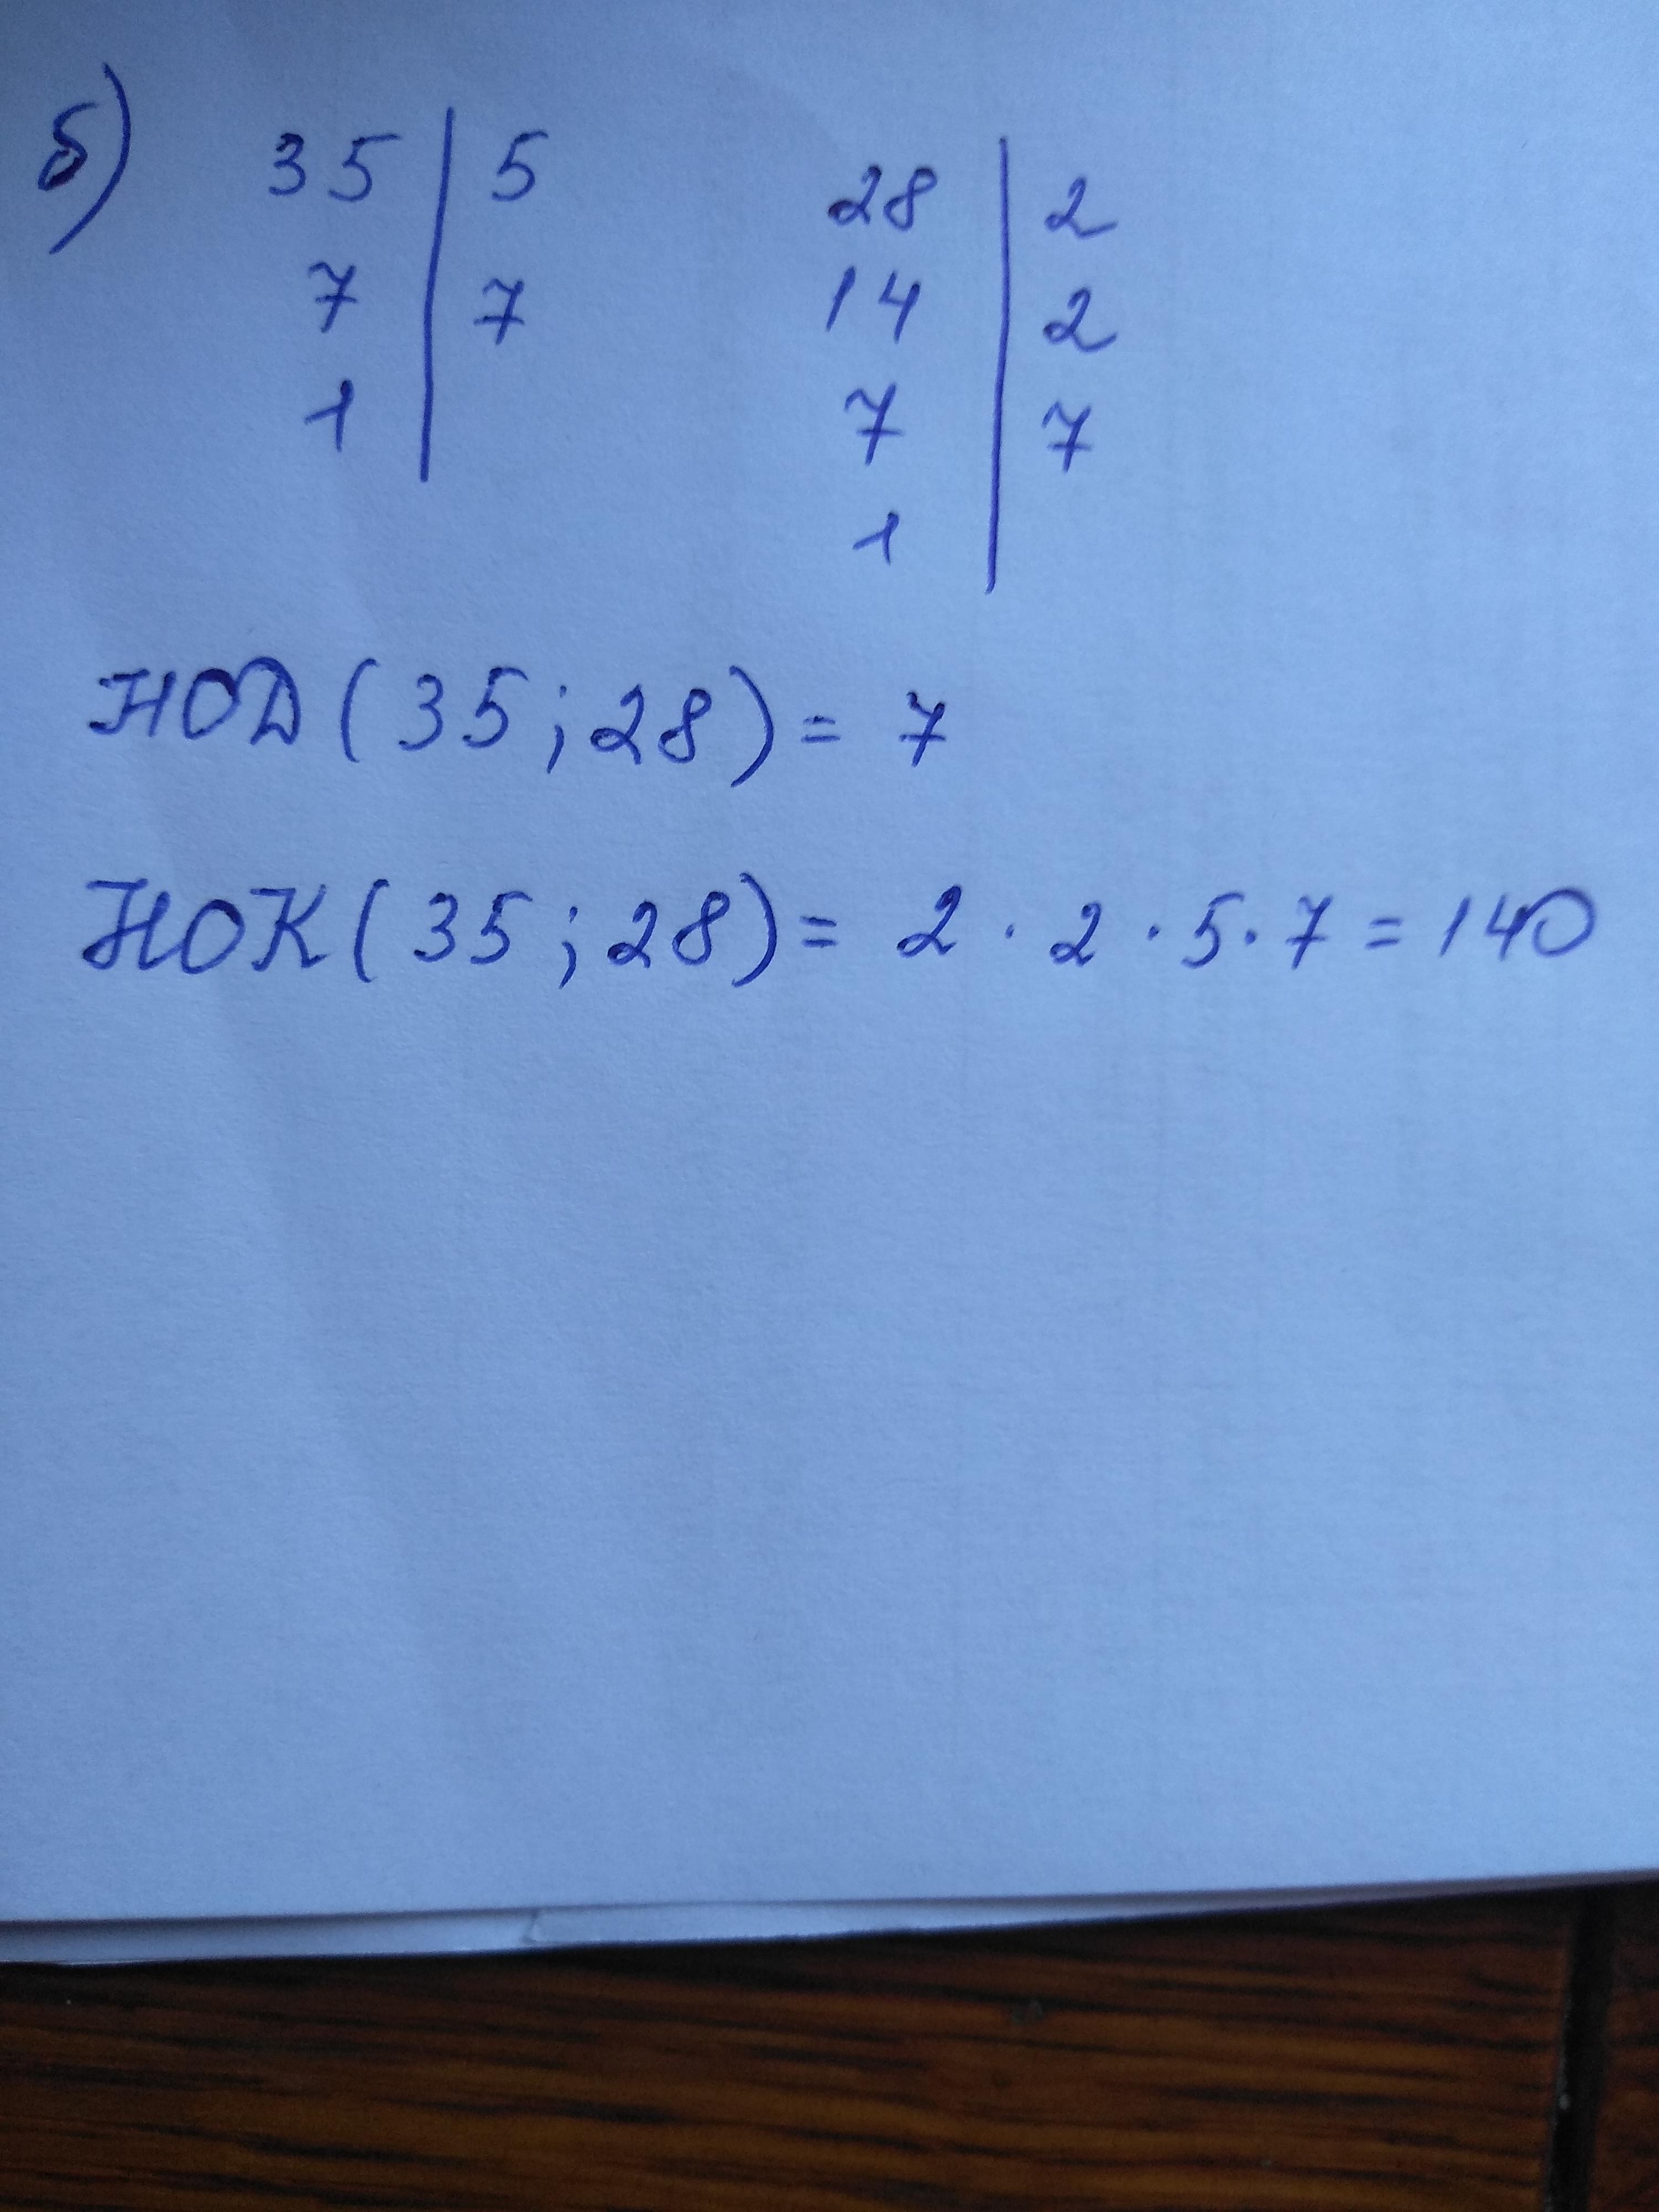 б) 35 | 5 28 | 2
7 | 7 14 | 2
1 | 7 | 7
1 |
НОД (35; 28) = 7
НОК (35; 28) = 2 · 2 · 5 · 7 = 140